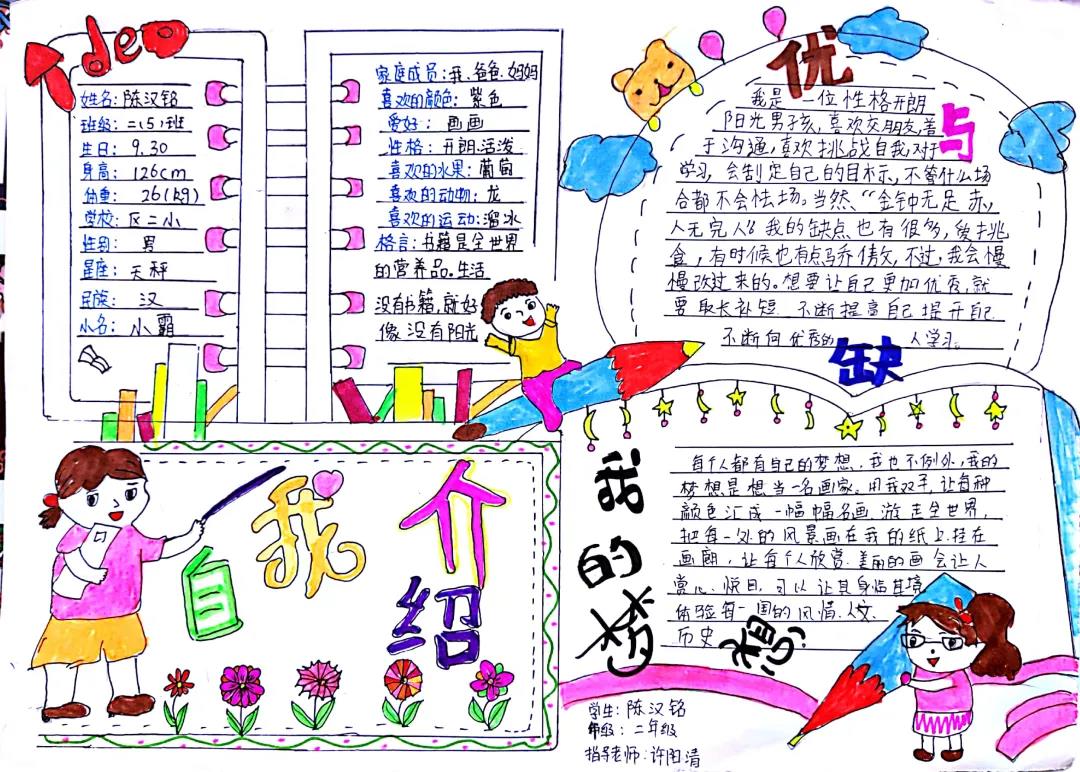 姓名:陈汉铭
班级:二(5)班
生日:9.30
身高:126cm
体重:26(kg)
学校:区二小
性别:男
星座:天秤
民族:汉
小名:小霸
家庭成员:我、爸爸、妈妈
喜欢的颜色:紫色
爱好:画画
性格:开朗.活泼
喜欢的水果:葡萄
喜欢的动物:龙
喜欢的运动:溜冰
格言:书籍是全世界
的营养品。生活
没有书籍,就好
像没有阳光
优
与
缺
我是一位性格开朗
阳光男孩,喜欢交朋友,善
于沟通,喜欢挑战自我,对于
学习,会制定自己的目标,不管什么场
合都不会怯场。当然,“金钟无足赤,
人无完人”我的缺点也有很多,
食,有时候也有点骄傲,不过,我会慢
慢改过来的。想要让自己更加优秀,就
要取长补短.不断提高自己提升自己.
不断向优秀的人学习。
自我介绍
我的梦想
每个人都有自己的梦想,我也不例外,我的
梦想是想当一名画家。用我双手,让每种
颜色汇成一幅幅名画.游走全世界,
把每一处的风景画在我的纸上.挂在
画廊,让每个人欣赏.美丽的画会让人
赏心悦目,可以让其身临其境
体验每一国的风情.人文.
历史
学生:陈汉铭
年级:二年级
指导老师:许阳清